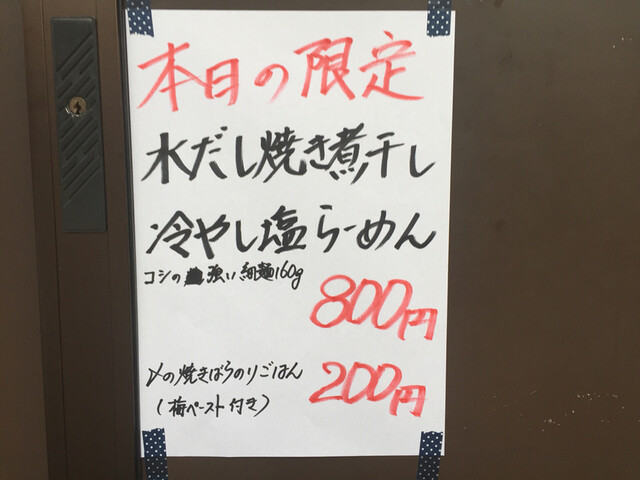 本日の限定
水だし焼き煮干し
冷やし塩らーめん
コシの強い細麺160g
800円
〆の焼きばらのりごはん
200円
(梅ペースト付き)